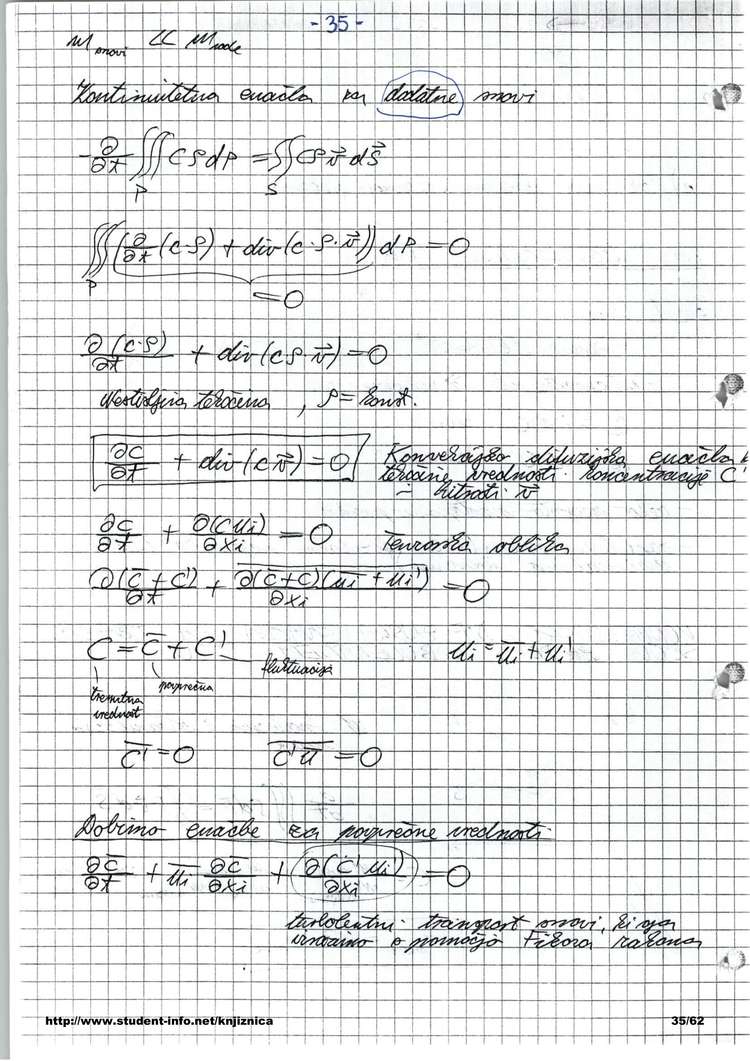 - 35 -
m snovi << m vode
Kontinuitetna enačba za dodatne snovi
-∂/∂t ∭_P Cρ dP = ∬_S Cρ v⃗ dS⃗
∭_P (∂/∂t (C·ρ) + div(C·ρ·v⃗)) dP = 0
= 0
∂(C·ρ)/∂t + div(Cρ·v⃗) = 0
Nestisljiva tekočina , ρ = konst.
∂C/∂t + div(C v⃗) = 0 Konvekcijsko difuzijska enačba
tekočine vrednosti koncentracije C
hitrosti v⃗
∂C/∂t + ∂(C ui)/∂xi = 0 Tenzorska oblika
∂(C̅ + C')/∂t + ∂(C̅ + C)(u̅i + ui')/∂xi = 0
C = C̅ + C' ui = u̅i + ui'
fluktuacija
povprečna
trenutna
vrednost
C̅'̅ = 0 C̅'̅u̅ = 0
Dobimo enačbe za povprečne vrednosti
∂C̅/∂t + u̅i ∂C̅/∂xi + ∂(C' ui')/∂xi = 0
turbolentni transport snovi, ki ga
izrazimo s pomočjo Fikova zakona
http://www.student-info.net/knjiznica 35/62